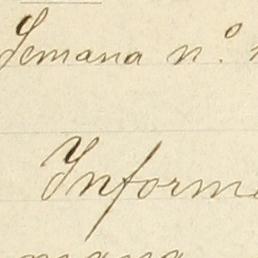 Semana n.º
Inform